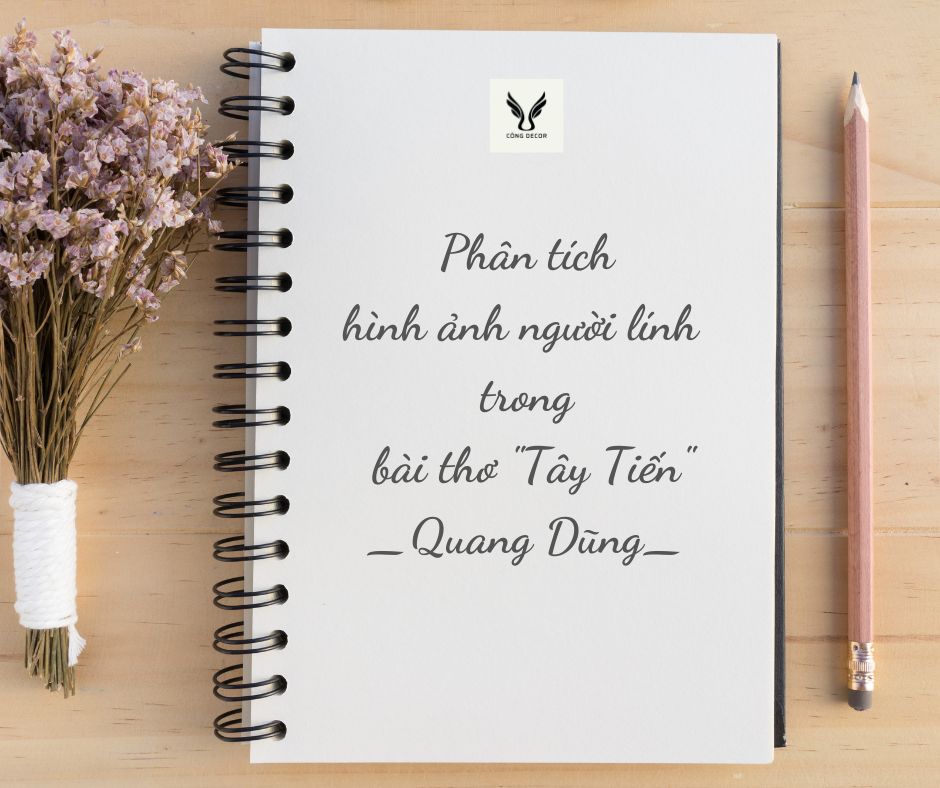 CÔNG DECOR
Phân tích
hình ảnh người lính
trong
bài thơ "Tây Tiến"
_Quang Dũng_